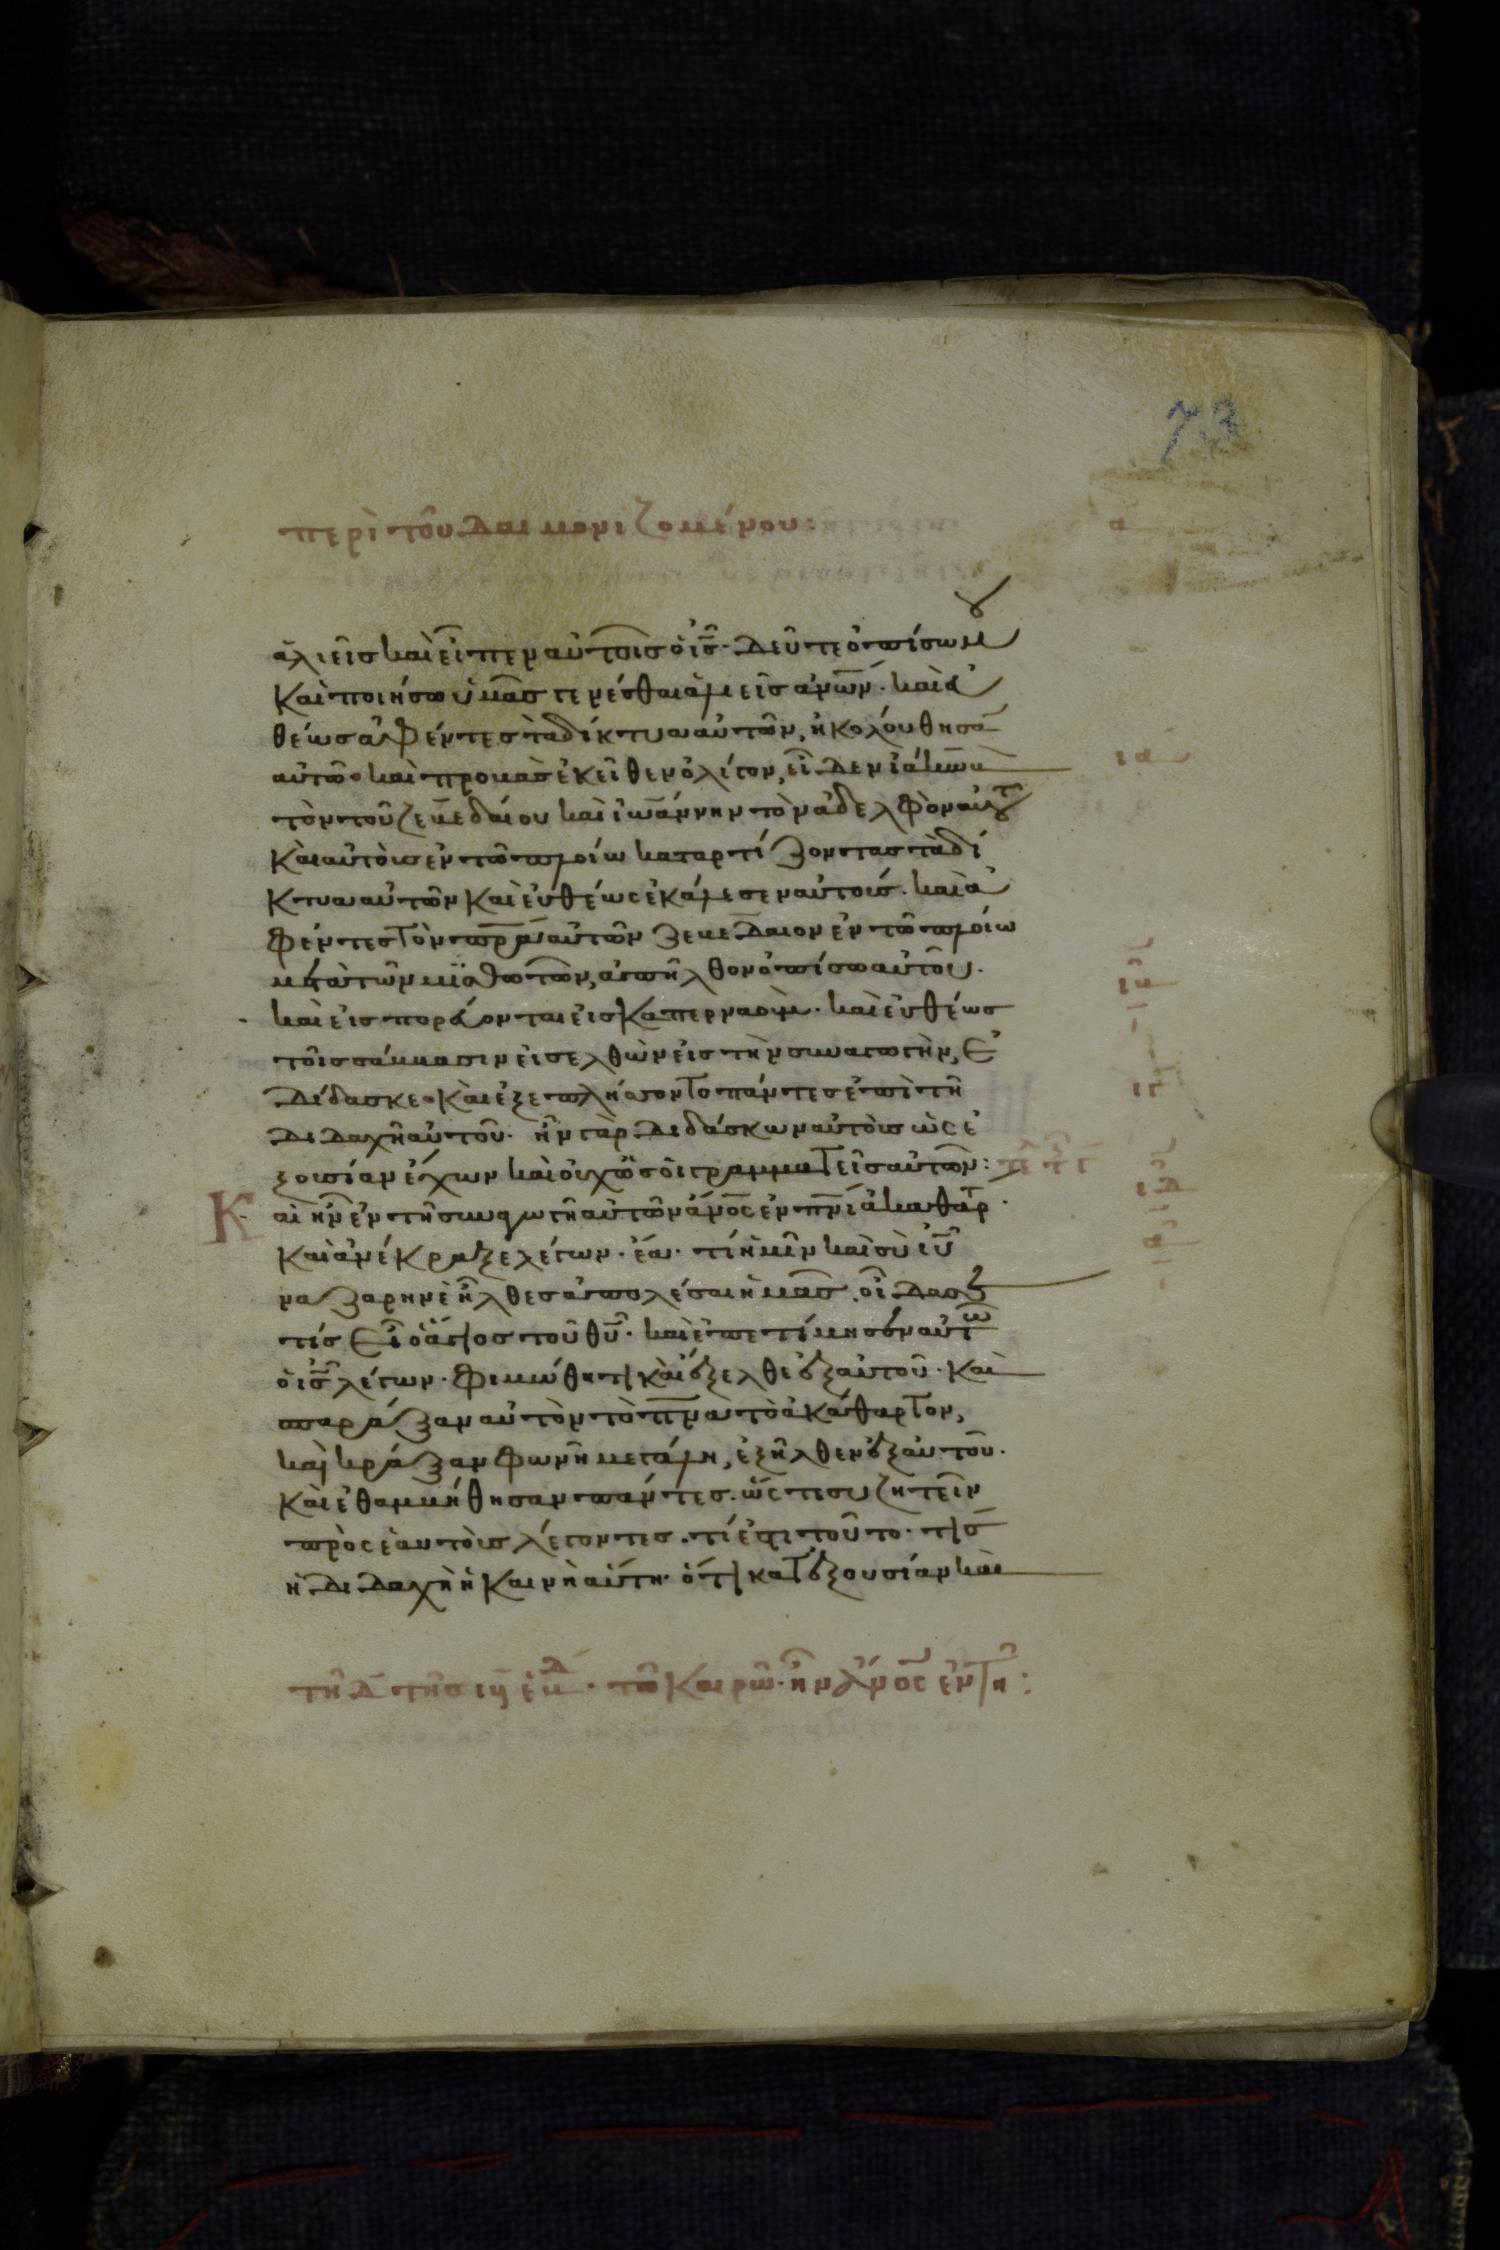 73
περὶ τοῦ δαιμονιζομένου:
α
ἁλιεῖσ καὶ εἶπεν αὐτοῖσ ὁ ἰς̅· δεῦτε ὀπίσω μου
καὶ ποιήσω ὑμᾶσ γενέσθαι ἁλιεῖσ ἀνω̅ν· καὶ εὐ
θέωσ ἀφέντεσ τὰ δίκτυα αὐτῶν, ἠκολούθησα̅
αὐτῶ· καὶ προβὰσ ἐκεῖθεν ὀλίγον, εἶδεν ἰάκωβ
ια
τὸν τοῦ ζεβεδαίου καὶ ἰωάννην τὸν ἀδελφὸν αὐτου
καὶ αὐτοὺσ ἐν τῶ πλοίω καταρτίζοντασ τὰ δί
κτυα αὐτῶν καὶ εὐθέωσ ἐκάλεσεν αὐτούσ. καὶ ἀ
φέντεσ τὸν πρ̅α αὐτῶν ζεβεδαιον ἐν τῶ πλοίω
μετὰ τῶν μισθωτῶν, ἀπῆλθον ὀπίσω αὐτοῦ.
ιβ
καὶ εἰσπορεύονται εἰσ καπερναούμ· καὶ εὐθέωσ
τοῖσ σάββασιν εἰσελθὼν εἰσ τὴν συναγωγὴν, ἐ
δίδασκε· καὶ ἐξεπλήσσοντο πάντεσ ἐπὶ τῆ
ιγ
διδαχῆ αὐτοῦ· ἦν γὰρ διδάσκων αὐτοὺσ ὡς ἐ
ξουσίαν ἔχων καὶ οὐχ ὡσ οἱ γραμματεῖσ αὐτῶν:
ιδ
Καὶ ἦν ἐν τῆ συναγωγῆ αὐτῶν ἄνο̅ς ἐν πν̅ι ἀκαθάρτ
καὶ ἀνέκραξε λέγων· ἔα· τί ἡμῖν καὶ σὺ ἰυ̅
ναζαρηνὲ ἦλθεσ ἀπολέσαι ἡμᾶσ. οἶδα σε
τίσ εἶ ὁ ἅγιοσ τοῦ θυ̅· καὶ ἐπετίμησεν αὐτῶ
ὁ ἰς̅ λέγων· φιμώθητι καὶ ἔξελθε ἐξ αὐτοῦ· καὶ
σπαράξαν αὐτὸν τὸ πν̅α τὸ ἀκάθαρτον,
καὶ κράξαν φωνῆ μεγάλη, ἐξῆλθεν ἐξ αὐτοῦ.
καὶ ἐθαμβήθησαν πάντεσ. ὥστε συζητεῖν
πρὸς ἑαυτοὺσ λέγοντεσ. τί ἐστι τοῦτο· τίσ
ἡ διδαχὴ ἡ καινὴ αὕτη· ὅτι κατ ἐξουσίαν καὶ
τῆ δ̅ τῆσ ιϛ̅ ἑβδ. τῶ καιρῶ. ἦν ἄνο̅ς ἐν τῆ: